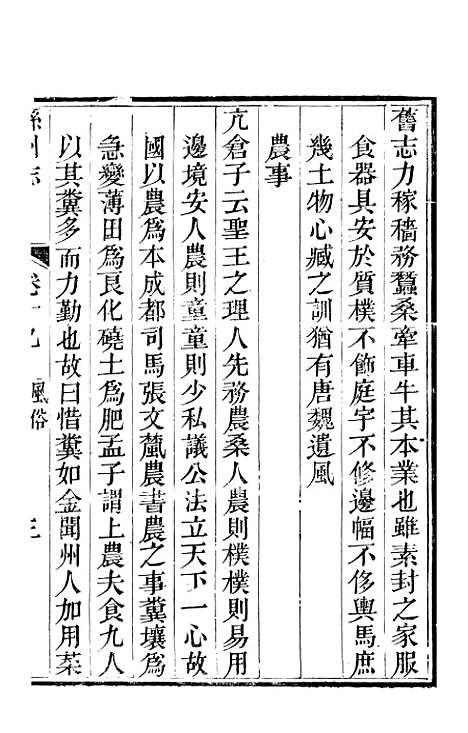 舊志力稼穡務蠶桑牽車牛其本業也雖素封之家服
食器具安於質樸不飾庭宇不修邊幅不侈輿馬庶
幾土物心臧之訓猶有唐魏遺風
農事
亢倉子云聖王之理人先務農桑人農則樸樸則易用
邊境安人農則童童則少私議公法立天下一心故
國以農爲本成都司馬張文䕲農書農之事糞壤爲
急變薄田爲良化磽土爲肥孟子謂上農夫食九人
以其糞多而力勤也故曰惜糞如金聞州人加用菜
州志
卷十九
風俗
三